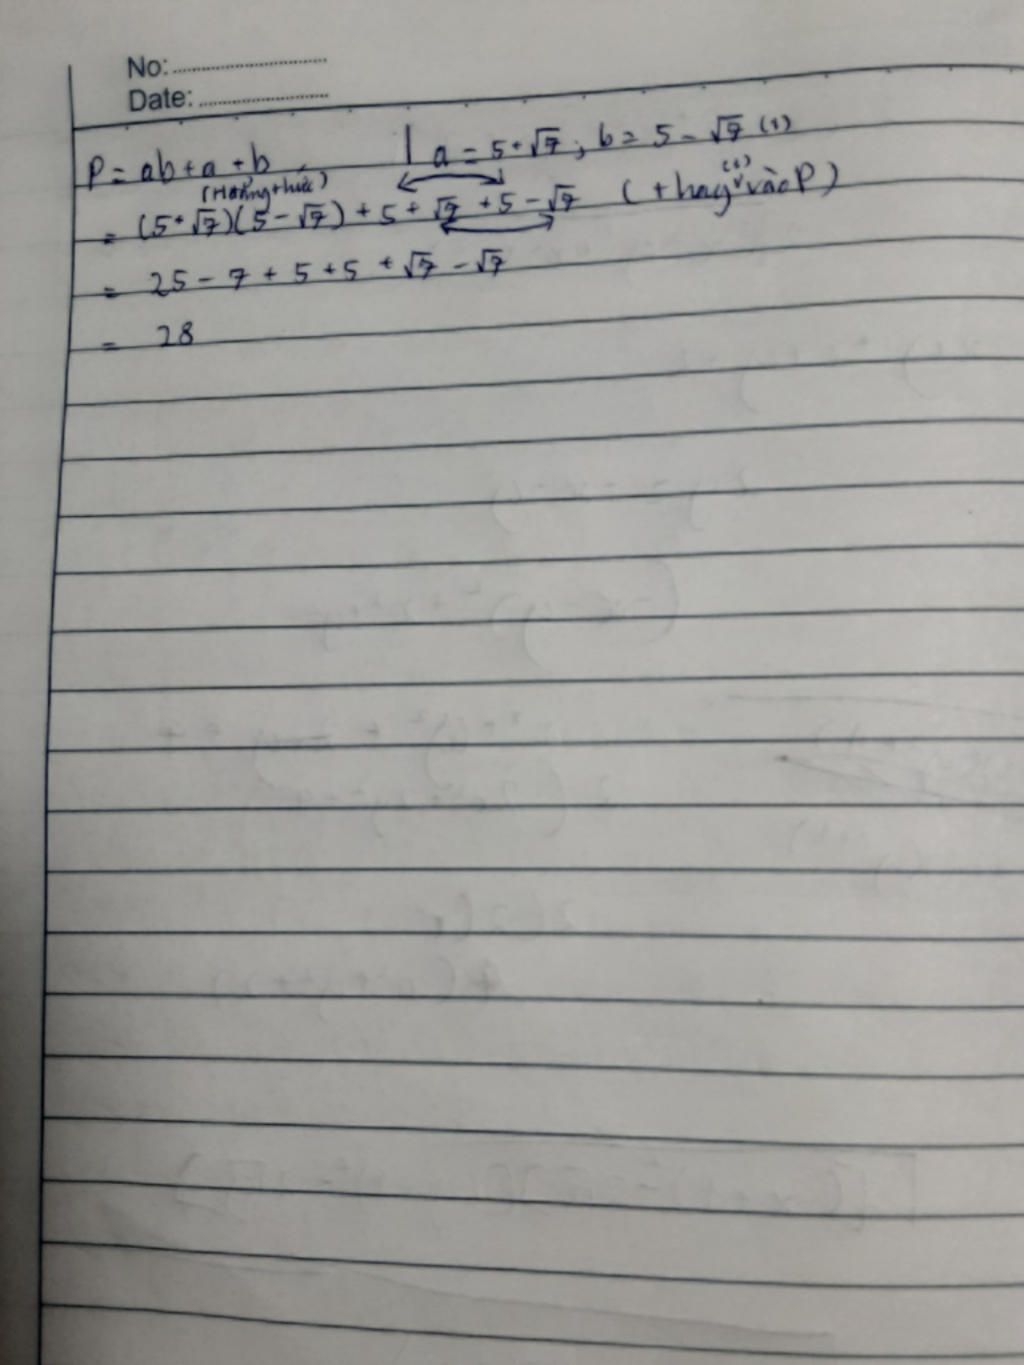 No:
Date:
P = ab + a + b | a = 5 + √7 ; b = 5 - √7 (1)
(Hằng thức) (1)
= (5 + √7)(5 - √7) + 5 + √7 + 5 - √7 (thay vào P)
= 25 - 7 + 5 + 5 + √7 - √7
= 28